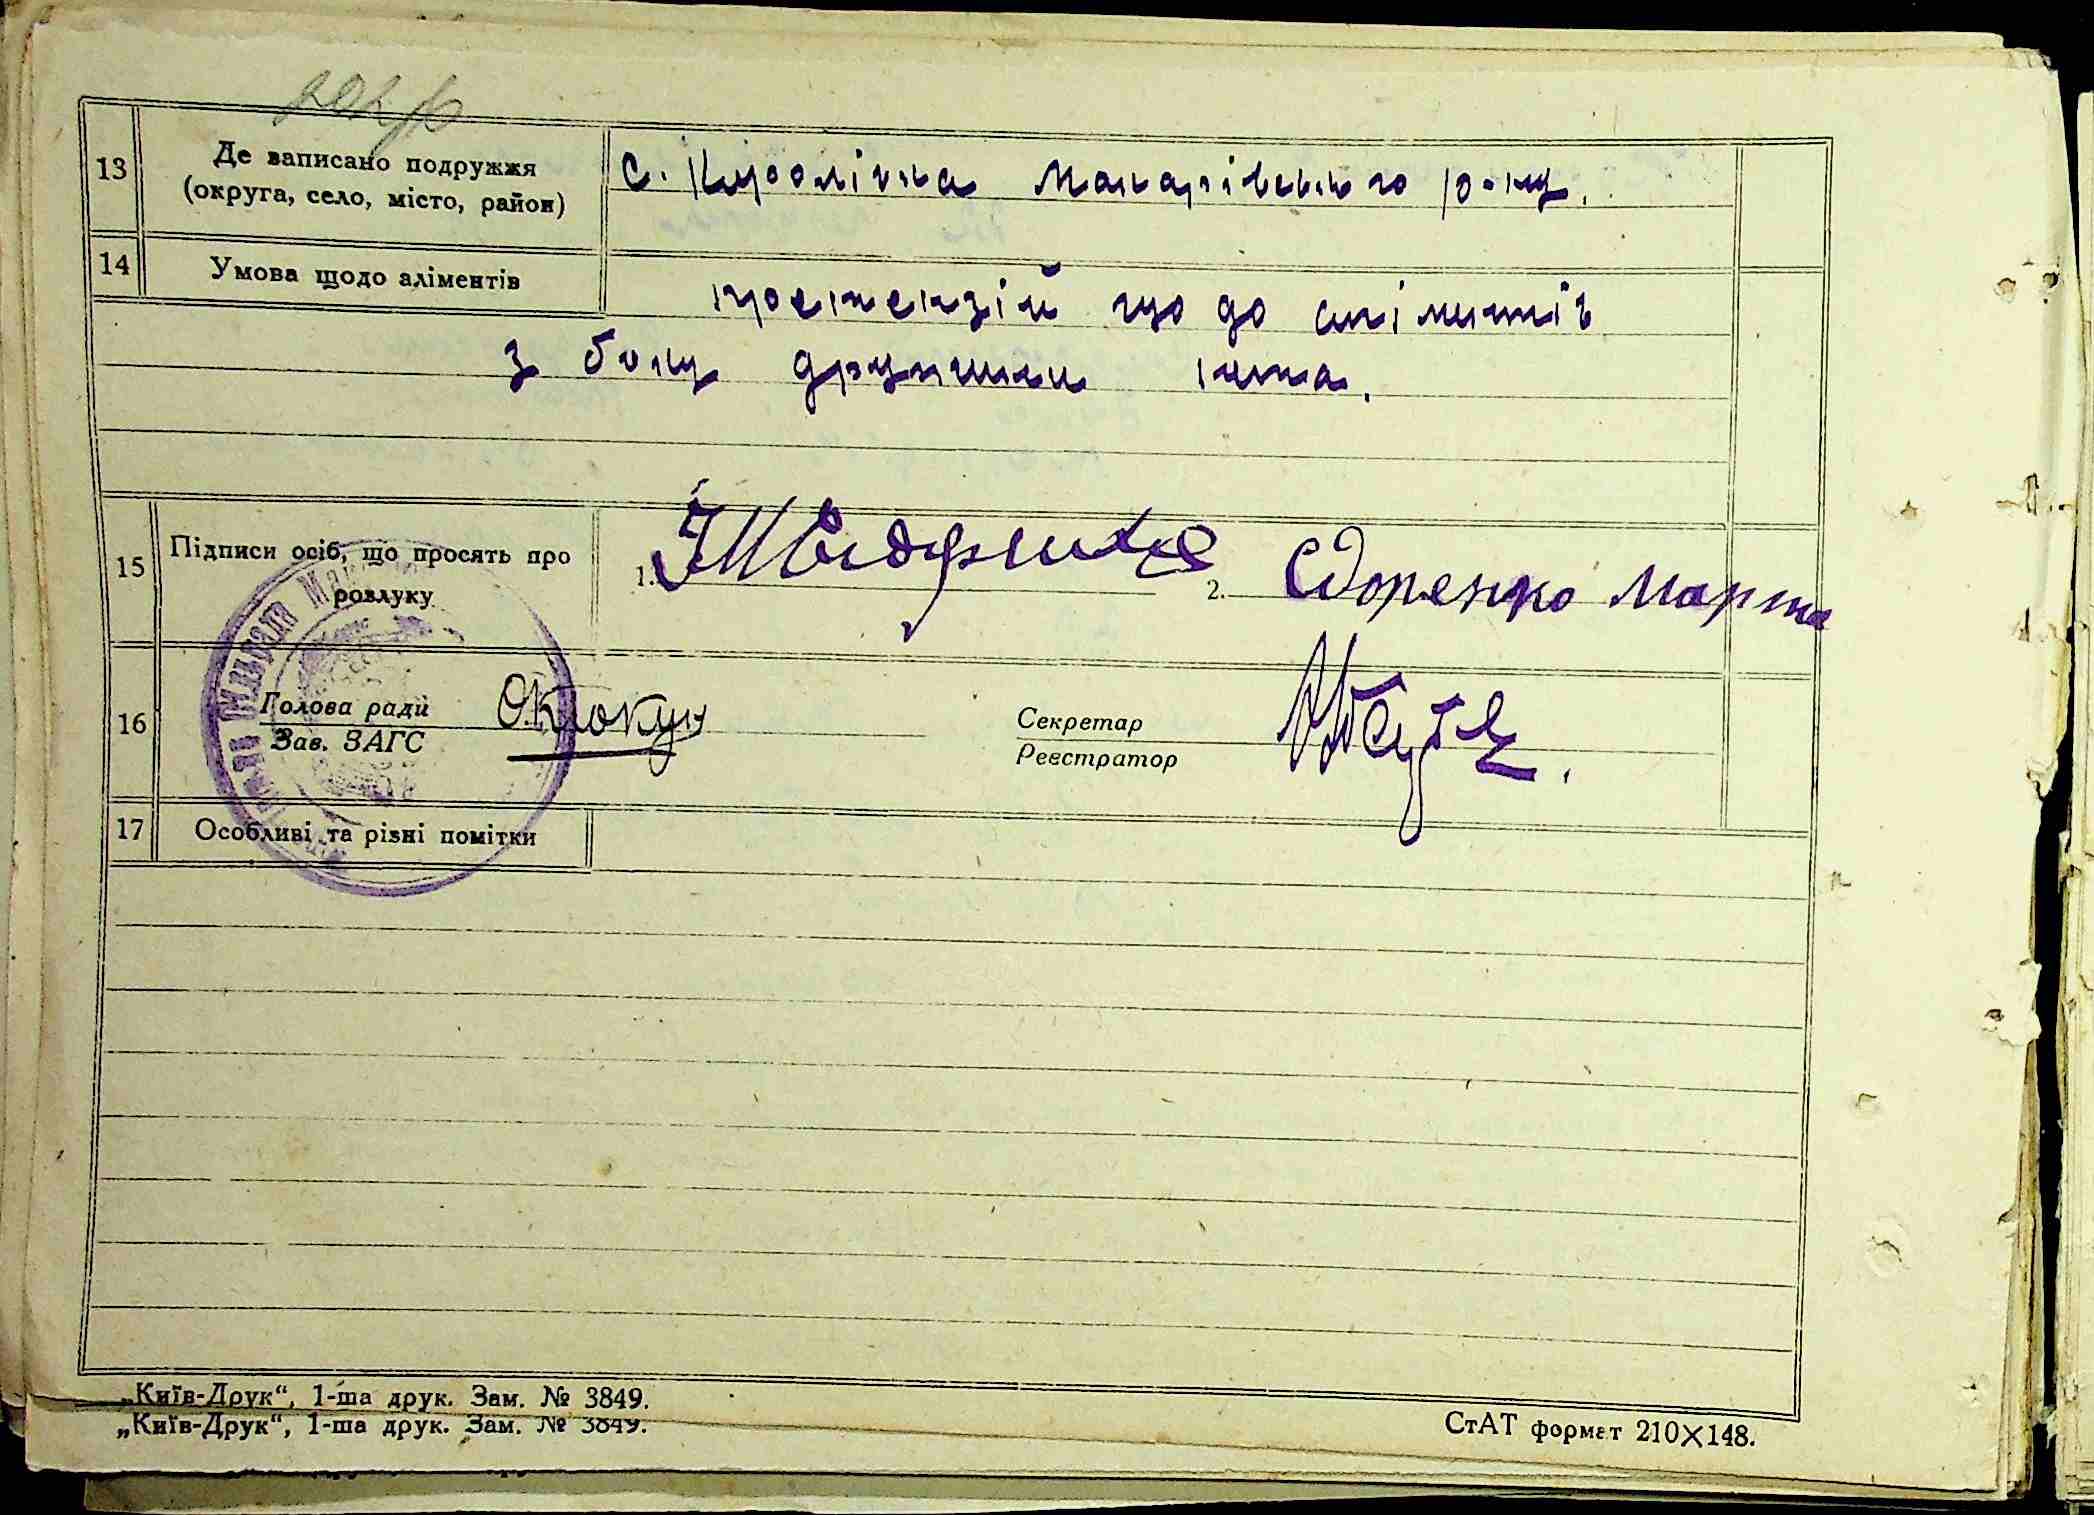 202/б
13
Де записано подружжя
(округа, село, місто, район)
с. Королівка Макарівського р-ну.
14
Умова щодо аліментів
претензій що до аліментів
з боку дружини нема.
15
Підписи осіб, що просять про
розлуку
1.
2. Сдоренко Марта
16
Голова ради
Зав. ЗАГС
Секретар
Реєстратор
17
Особливі та різні помітки
„Київ-Друк“, 1-ша друк. Зам. № 3849.
„Київ-Друк“, 1-ша друк. Зам. № 3849.
СтАТ формат 210×148.